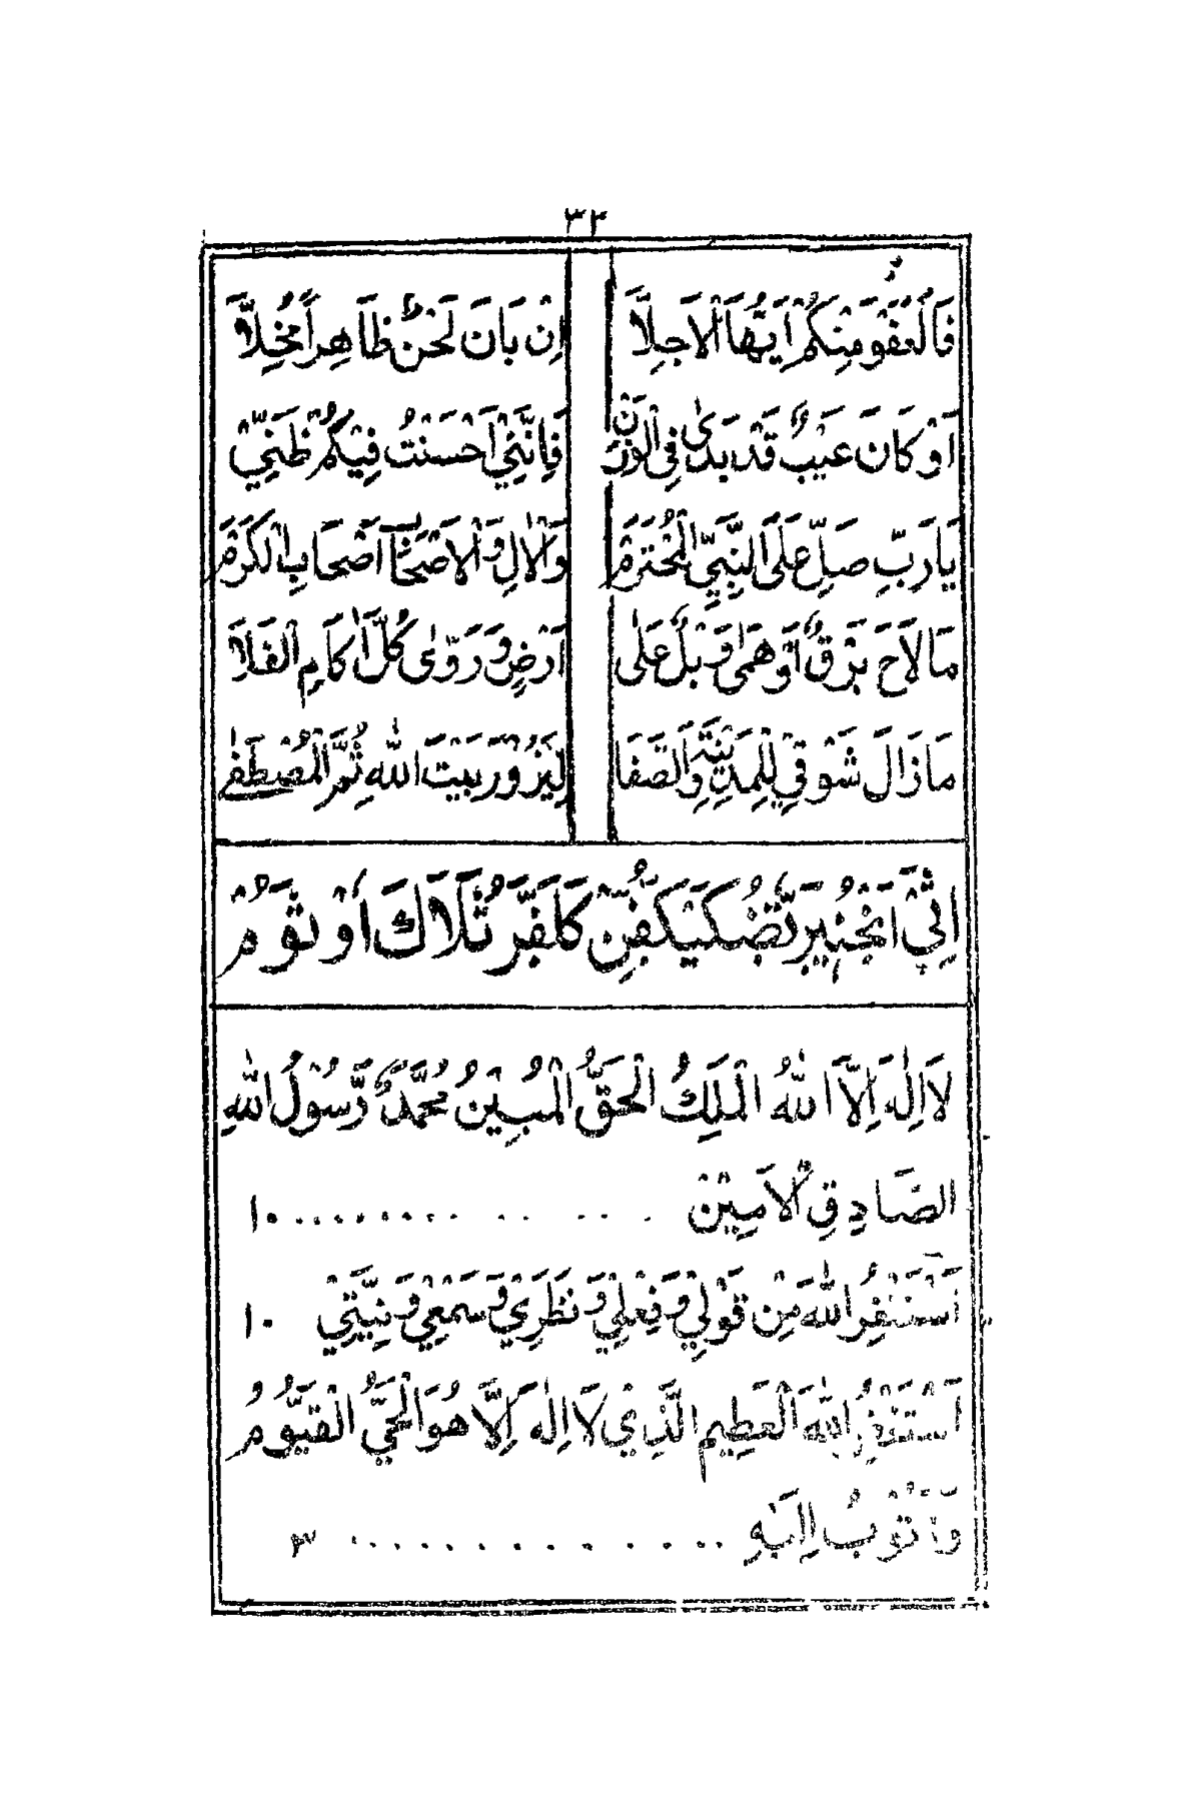 ٣٢
فَالْعَفْوَ مِنْكُمْ اَيُّهَا الْاَجِلَّا اِنْ بَانَ لَحْنٌ ظَاهِرًا مُخِلًّا
اَوْ كَانَ عَيْبٌ قَدْ بَدَىٰ فِى الْوَزْنِ فَاِنَّنِيْ اَحْسَنْتُ فِيْكُمْ ظَنِّيْ
يَارَبِّ صَلِّ عَلَى النَّبِيِّ الْمُحْتَرَمْ وَالْاٰلِ وَالْاَصْحَابْ اَصْحَابِ الْكَرَمْ
مَا لَاحَ بَرْقٌ اَوْ هَمٰى وَبْلٌ عَلٰى اَرْضٍ وَرَوّٰى كُلَّ اٰكَامِ الْفَلَا
مَا زَالَ شَوْقِيْ لِلْمَدِيْنَةِ وَالصَّفَا لِيَزُوْرَ بَيْتَ اللهِ ثُمَّ الْمُصْطَفٰى
كَلَفَّرْ تُلَاكَ اَوْ
لَا اِلٰهَ اِلَّا اللهُ الْمَلِكُ الْحَقُّ الْمُبِيْنُ مُحَمَّدٌ رَّسُوْلُ اللهِ
الصَّادِقِ الْاَمِيْنْ . . . . . . . . . . ١٠
اَسْتَغْفِرُ اللهَ مِنْ قَوْلِيْ وَفِعْلِيْ وَنَظَرِيْ وَسَمْعِيْ وَنِيَّتِيْ ١٠
اَسْتَغْفِرُ اللهَ الْعَظِيْمِ الَّذِيْ لَا اِلٰهَ اِلَّا هُوَ الْحَيُّ الْقَيُّوْمُ
وَاَتُوْبُ اِلَيْهِ . . . . . . . . . . ٣